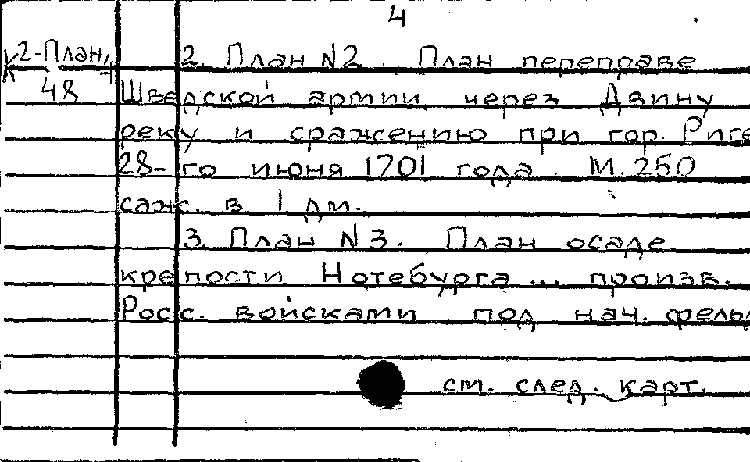 4
2-План,
48
2. План №2. План переправе
Шведской армии через Двину
реку и сражению при гор. Риге
28-го июня 1701 года М. 250
саж. в 1 дм.
3. План №3. План осаде
крепости Нотебурга ... произв.
Росс. войсками под нач. фельд
см. след. карт.